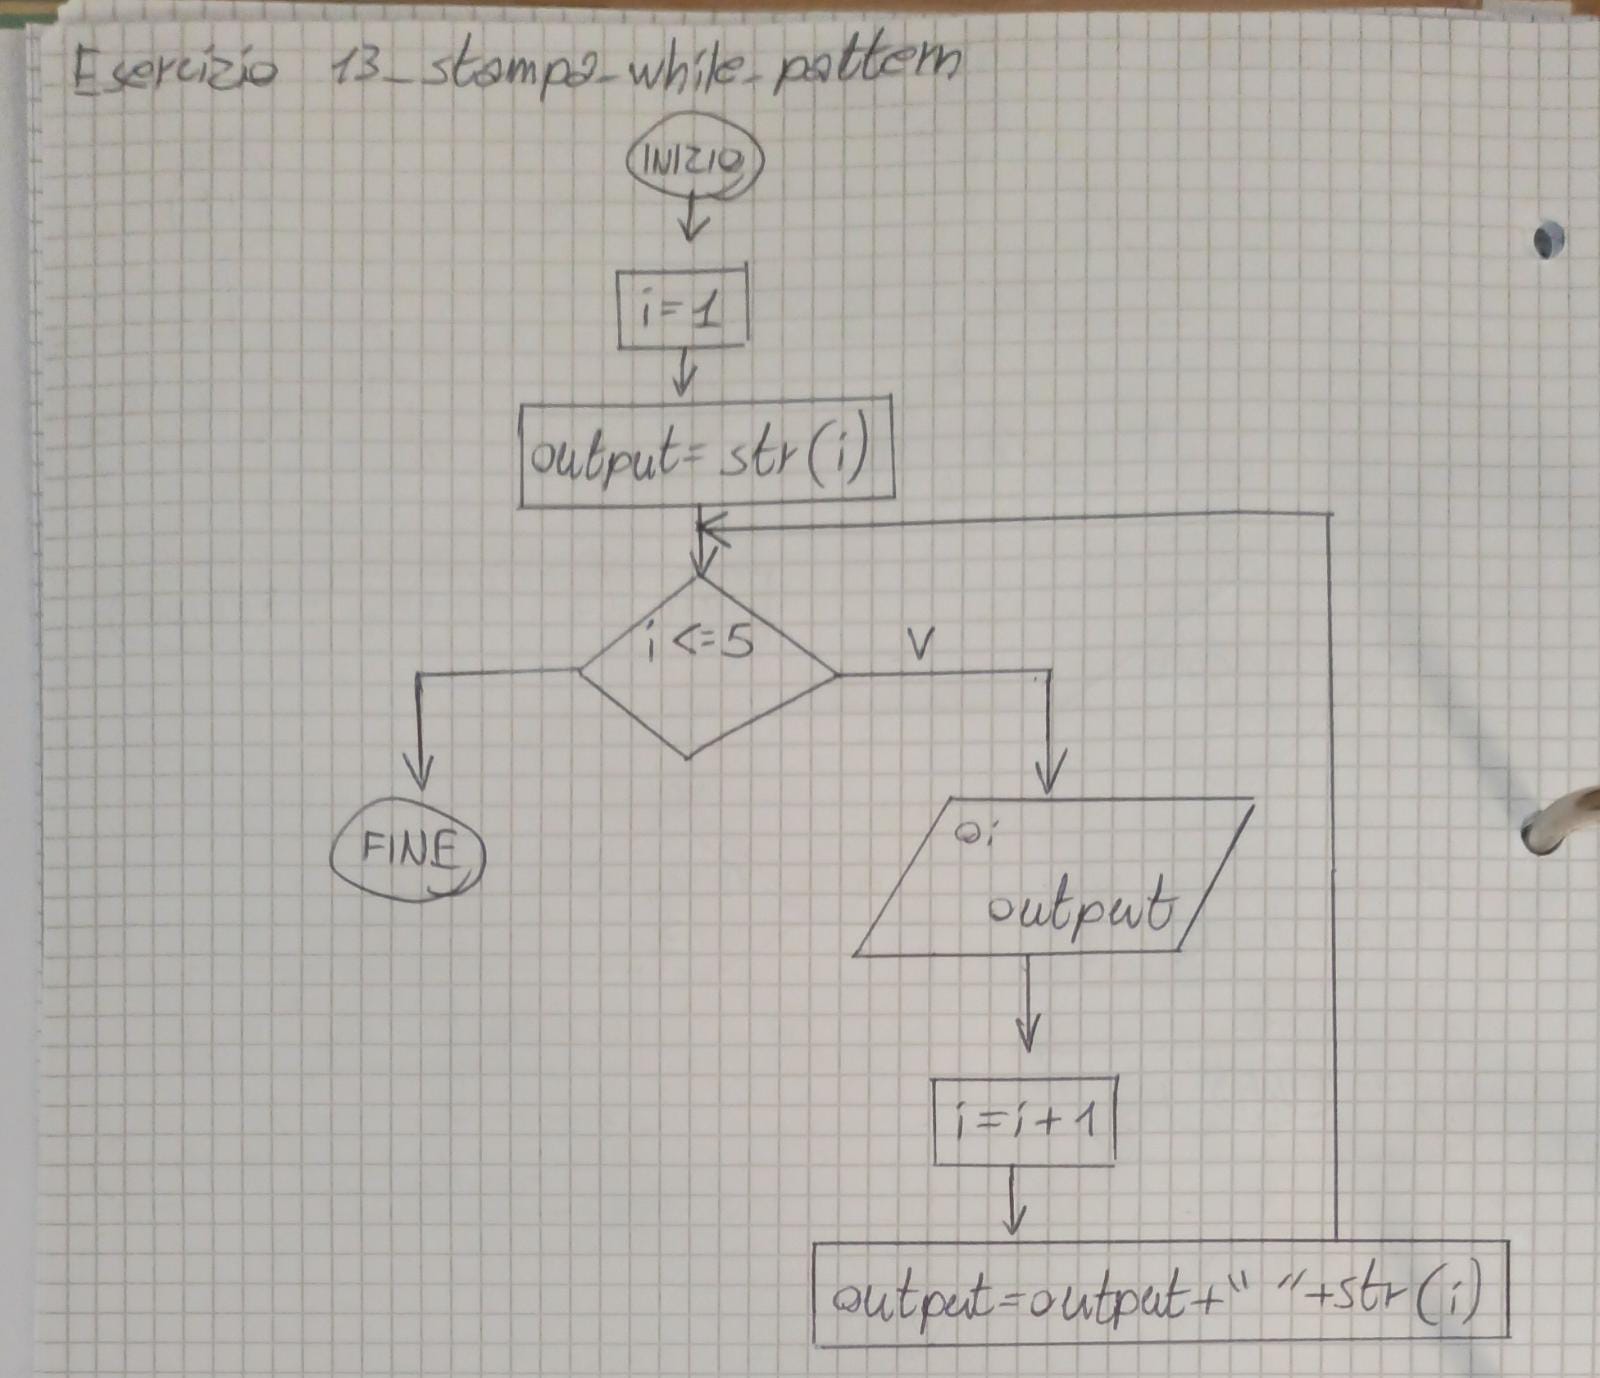 Esercizio 13_stampa_while_pattern
INIZIO
i=1
output= str(i)
i <=5
V
FINE
o:
output
i=i+1
output=output+" "+str(i)